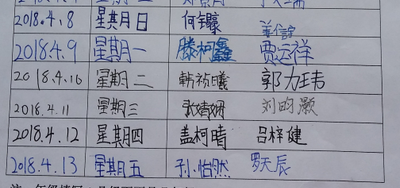 2018.4.8 星期日 何
2018.4.9 星期一 滕柯鑫 贾运祥
2018.4.10 星期二 韩祯曦 郭力玮
2018.4.11 星期三 张婧姗 刘昀灏
2018.4.12 星期四 盖柯晴 吕祥健
2018.4.13 星期五 孙怡然 罗天辰